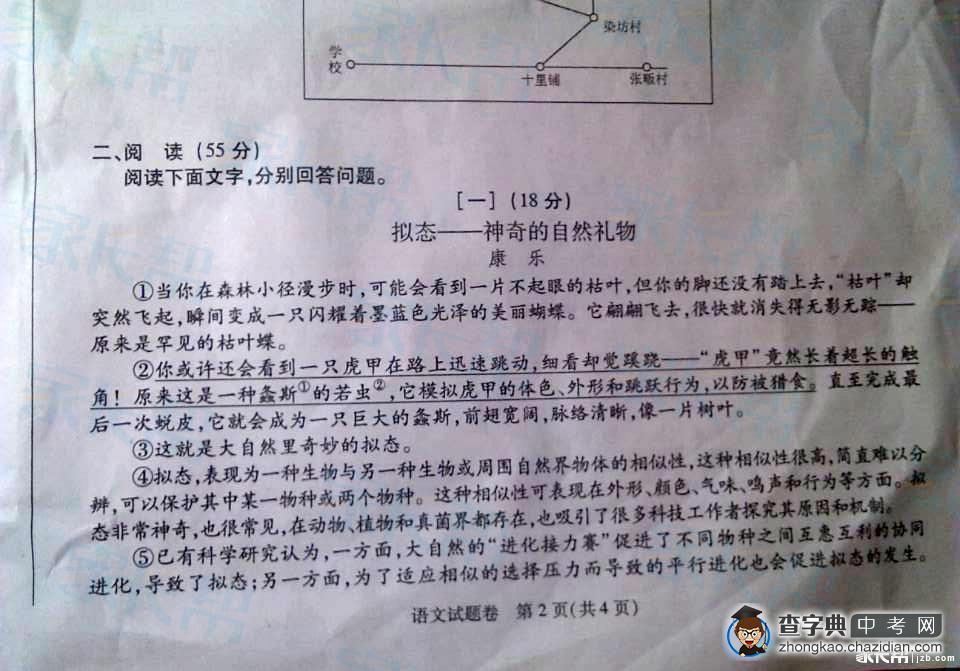 染坊村
学校
十里铺
张畈村
二、阅 读 (55 分)
阅读下面文字,分别回答问题。
[一] (18 分)
拟态——神奇的自然礼物
康 乐
①当你在森林小径漫步时,可能会看到一片不起眼的枯叶,但你的脚还没有踏上去,“枯叶”却
突然飞起,瞬间变成一只闪耀着墨蓝色光泽的美丽蝴蝶。它翩翩飞去,很快就消失得无影无踪——
原来是罕见的枯叶蝶。
②你或许还会看到一只虎甲在路上迅速跳动,细看却觉蹊跷——“虎甲”竟然长着超长的触
角！原来这是一种螽斯①的若虫②,它模拟虎甲的体色、外形和跳跃行为,以防被猎食。直至完成最
后一次蜕皮,它就会成为一只巨大的螽斯,前翅宽阔,脉络清晰,像一片树叶。
③这就是大自然里奇妙的拟态。
④拟态,表现为一种生物与另一种生物或周围自然界物体的相似性,这种相似性很高,简直难以分
辨,可以保护其中某一物种或两个物种。这种相似性可表现在外形、颜色、气味、鸣声和行为等方面。拟
态非常神奇,也很常见,在动物、植物和真菌界都存在,也吸引了很多科技工作者探究其原因和机制。
⑤已有科学研究认为,一方面,大自然的“进化接力赛”促进了不同物种之间互惠互利的协同
进化,导致了拟态;另一方面,为了适应相似的选择压力而导致的平行进化也会促进拟态的发生。
语文试题卷 第 2 页(共 4 页)
查字典 中考网
zhongkao.chazidian.com
家长帮 jzb.com